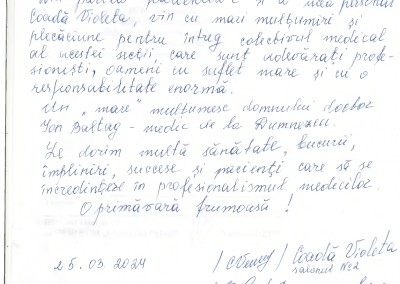 Din partea pacienților și a mea personal
Coadă Violeta, vin cu mari mulțumiri și
plăcăciune pentru întreg colectivul medical
al acestei secții, care sunt adevărați profe-
sioniști, oameni cu suflet mare și cu o
responsabilitate enormă.
Un „mare" mulțumesc domnului doctor
Ion Baltag - medic de la Dumnezeu.
Le dorim multă sănătate, bucurii,
împliniri, succese și pacienți care să se
încredințeze în profesionalismul medicilor.
O primăvară frumoasă !
25.03.2024
/ Coadă Violeta
salonul №2